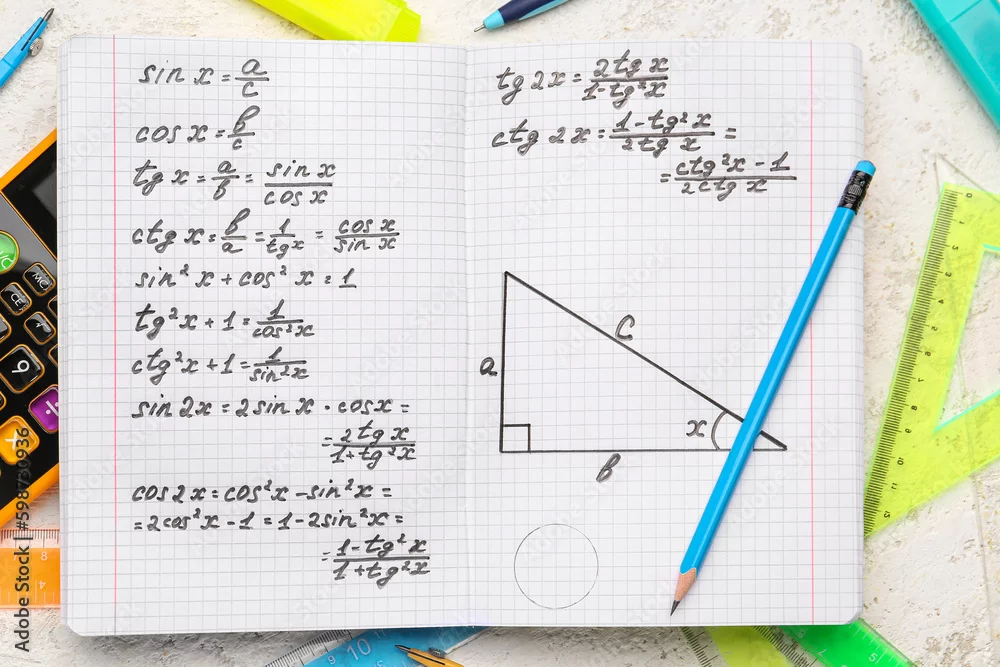 sin x = a/c
cos x = b/c
tg x = a/b = sin x/cos x
ctg x = b/a = 1/tg x = cos x/sin x
sin² x + cos² x = 1
tg²x + 1 = 1/cos²x
ctg²x + 1 = 1/sin²x
sin 2x = 2 sin x · cos x =
= 2 tg x/1 + tg²x
cos 2x = cos²x - sin²x =
= 2cos²x - 1 = 1 - 2sin²x =
= 1 - tg²x/1 + tg²x
tg 2x = 2 tg x/1 - tg²x
ctg 2x = 1 - tg²x/2 tg x =
= ctg²x - 1/2ctg x
c
a
x
b
MC
CE
Adobe Stock | #598730936